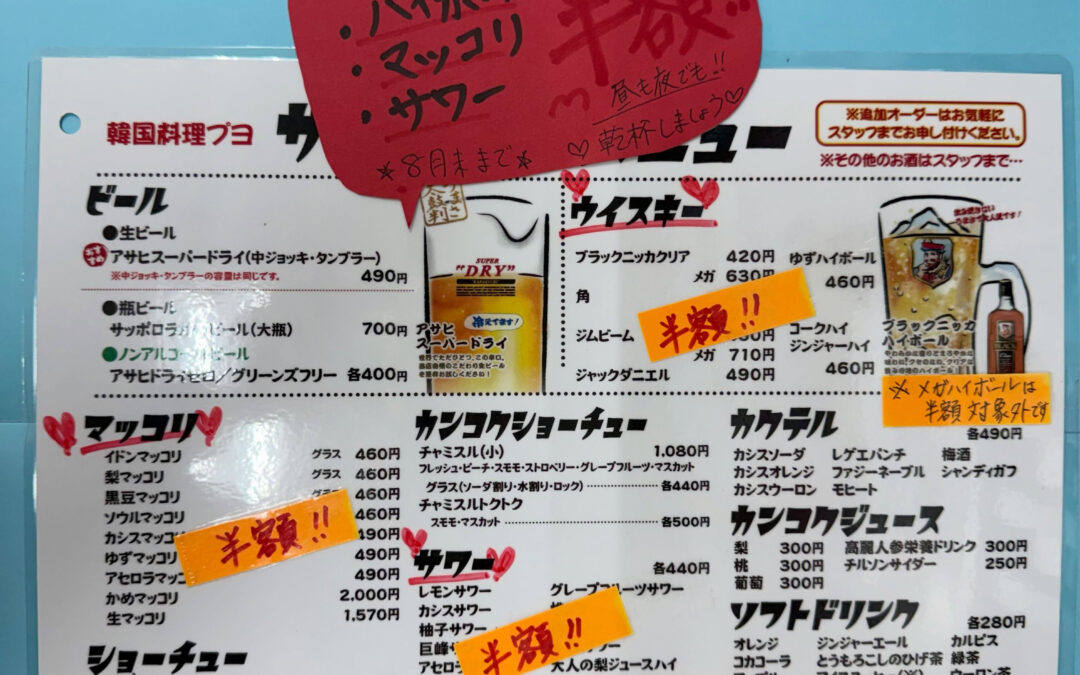 ・ハイボ
・マッコリ
・サワー
半額!!
昼も夜でも!!
乾杯しましょう♡
*8月末まで*
韓国料理プヨ
ニュー
※追加オーダーはお気軽に
スタッフまでお申し付けください。
※その他のお酒はスタッフまで…
ビール
●生ビール
おすすめ
アサヒスーパードライ(中ジョッキ・タンブラー)
※中ジョッキ・タンブラーの容量は同じです。
490円
●瓶ビール
サッポロラガービール(大瓶) 700円
●ノンアルコールビール
アサヒドライゼロ/グリーンズフリー 各400円
SUPER
"DRY"
冷えてます!
アサヒ
スーパードライ
ウイスキー
ブラックニッカクリア 420円
メガ 630円
角
ジムビーム
メガ 710円
ジャックダニエル 490円
半額!!
ゆずハイボール
460円
コークハイ
ジンジャーハイ
460円
ブラックニッカ
ハイボール
※メガハイボールは
半額対象外です
マッコリ
イドンマッコリ グラス 460円
梨マッコリ グラス 460円
黒豆マッコリ グラス 460円
ソウルマッコリ 460円
カシスマッコ 490円
ゆずマッコリ 490円
アセロラマッコ 490円
かめマッコリ 2,000円
生マッコリ 1,570円
半額!!
ショーチュー
カンコクショーチュー
チャミスル(小) 1,080円
フレッシュ・ピーチ・スモモ・ストロベリー・グレープフルーツ・マスカット
グラス(ソーダ割り・水割り・ロック) 各440円
チャミスルトクトク
スモモ・マスカット 各500円
サワー
各440円
レモンサワー グレープフルーツサワー
カシスサワー
柚子サワー
巨峰サ
アセロ 大人の梨ジュースハイ
半額!!
カクテル
各490円
カシスソーダ レゲエパンチ 梅酒
カシスオレンジ ファジーネーブル シャンディガフ
カシスウーロン モヒート
カンコクジュース
梨 300円 高麗人参栄養ドリンク 300円
桃 300円 チルソンサイダー 250円
葡萄 300円
ソフトドリンク
各280円
オレンジ ジンジャーエール カルピス
コカコーラ とうもろこしのひげ茶 緑茶